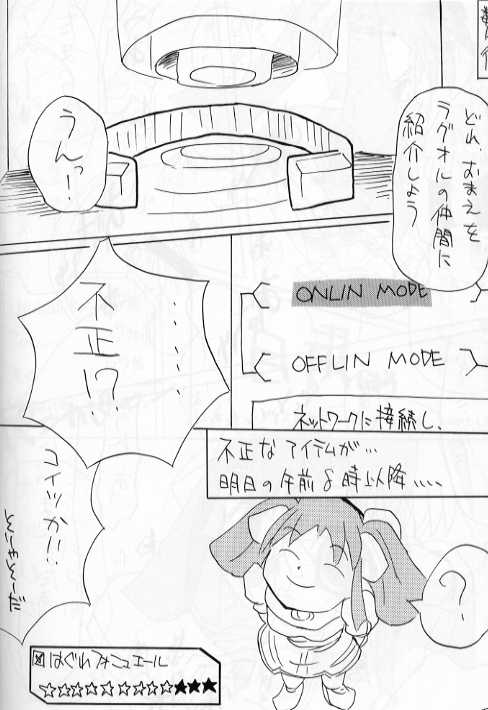 どれ、おまえを
ラグオルの仲間に
紹介しよう
うんっ!
ONLIN MODE
OFFLIN MODE
ネットワークに接続し、
不正なアイテムが…
明日の午前8時以降‥‥‥
・・・・・・
不正!?
コイツか!!
?
はぐれフォニュエール
☆☆☆☆☆☆☆☆☆★★★